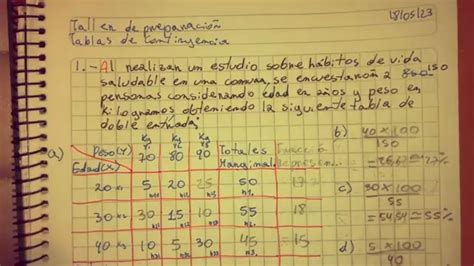 Taller de preparación 18/05/23
Tablas de contingencia
1.- Al realizan un estudio sobre hábitos de vida
saludable en una comuna, se encuestaron a 150
personas considerando edad en años y peso en
kilogramos obteniendo la siguiente tabla de
doble entrada:
a) Peso(Y) Kg Y1 70 Kg Y2 80 Kg Y3 90 Totales Marginal.
Edad(X)
20 X1 5 20 25 50
30 X2 30 15 10 55 18
40 X3 10 5 30 45 15
b) 40 x 100
150
c) 30 x 100
55
= 54,54 = 55%
d) 5 x 100
40